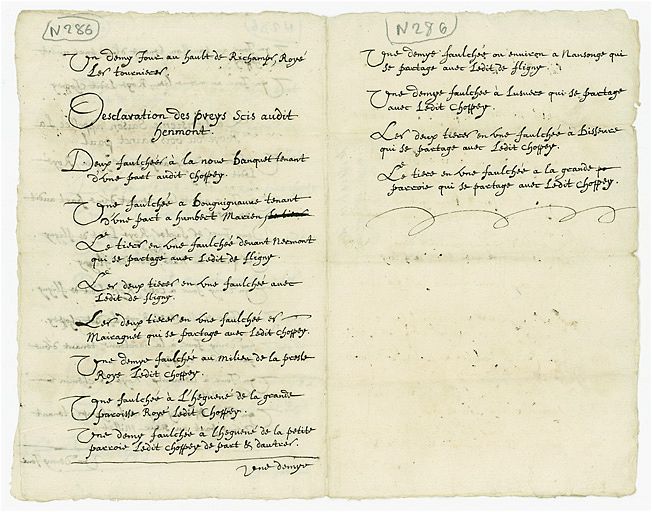 N 286
Un demy Jour au hault de Richamps, Royé
Les tournieres.
Desclaration des preys Scis audit
henmont.
Deux faulchées à la noue banquet tenant
d'vne part audit Choppey.
Une faulchée à Bouguignauue tenant
d'vne part a humbert Marien,
Le tiers en vne faulchée deuant Nermont
qui se partage auec Ledit de fligny
Les deux tieces en vne faulchée auec
Ledit de fligny.
Les deux tieces en vne faulchée es
Maragnet qui se partage auec Ledit Choppey.
Une demye faulchée au milieu de la preste
Royé Ledit Choppey.
Une faulchée à L'heguene de la grande
paroisse Royé Ledit Choppey
Une demy faulchée à lheguene de la petite
parroie Ledit Choppey de part & dautres.
vne demye
N 286
Une demye faulchée ou environ a Nansonge qui
se partage auec Ledit de fligny.
Une demye faulchée à Lusuece qui se partage
auec Ledit Choppey.
Les deux tieces en vne faulchée à Bisseuce
qui se partage auec Ledit Choppey.
Le tiece en vne faulchée a la grande
parroie qui se partage auec Ledit Choppey.